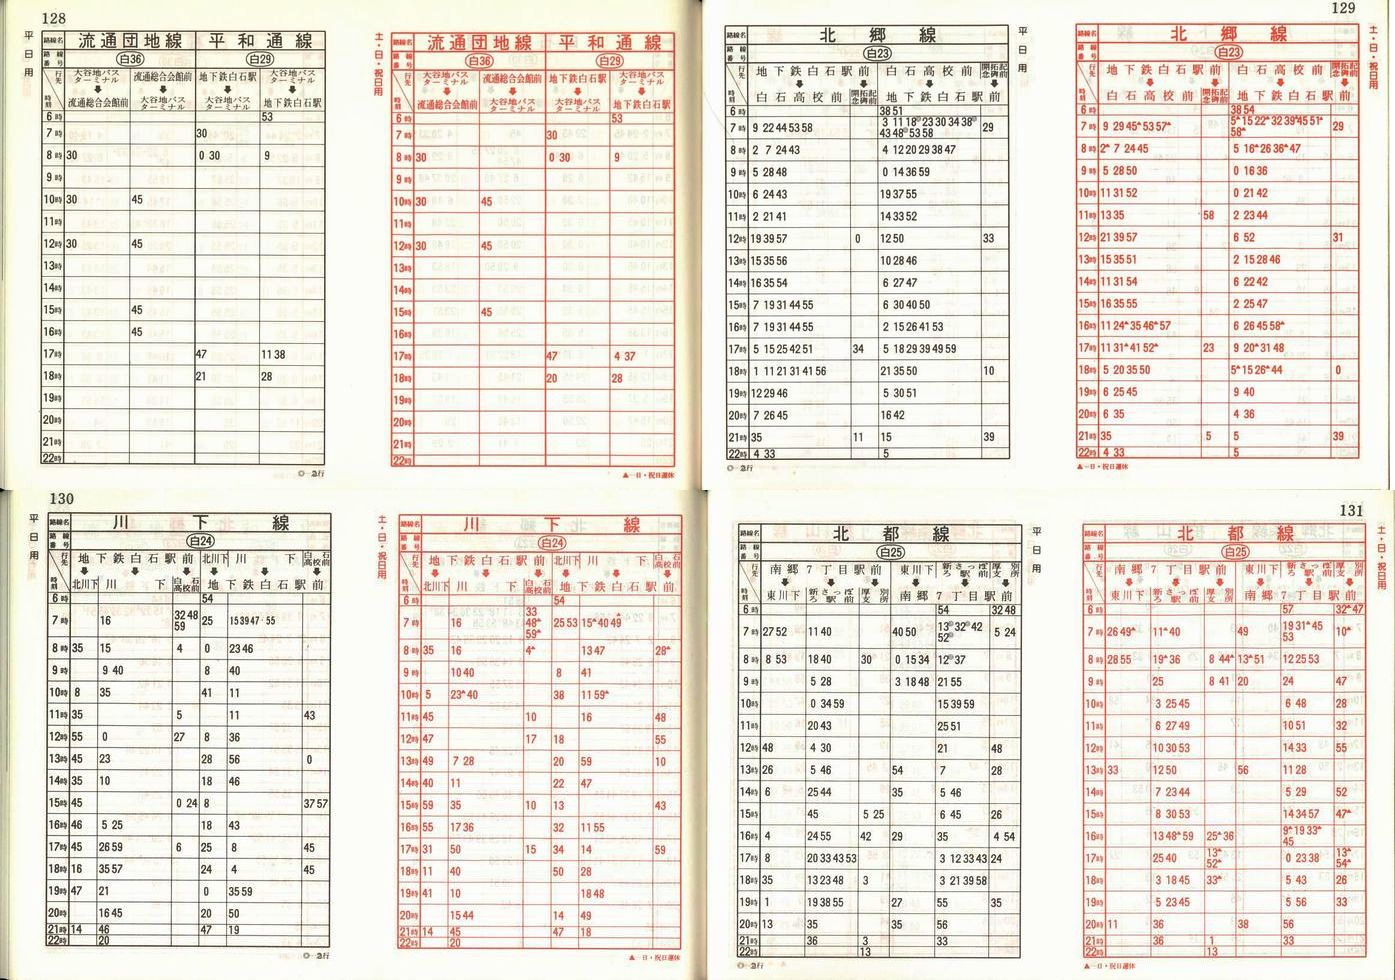 128
平日用
路線名 流通団地線 平和通線
路線番号 白36 白29
行先 大谷地バスターミナル 流通総合会館前 地下鉄白石駅 大谷地バスターミナル
時刻 流通総合会館前 大谷地バスターミナル 大谷地バスターミナル 地下鉄白石駅
6時 53
7時 30
8時 30 0 30 9
9時
10時 30 45
11時
12時 30 45
13時
14時
15時 45
16時 45
17時 47 11 38
18時 21 28
19時
20時
21時
22時
◎―急行
土・日・祝日用
路線名 流通団地線 平和通線
路線番号 白36 白29
行先 大谷地バスターミナル 流通総合会館前 大谷地バスターミナル
時刻 流通総合会館前 大谷地バスターミナル 大谷地バスターミナル 地下鉄白石駅
6時 53
7時 30
8時 30 0 30 9
9時
10時 30 45
11時
12時 30 45
13時
14時
15時 45
16時
17時 47 4 37
18時 20 28
19時
20時
21時
22時
▲―日・祝日運休
129
平日用
路線名 北郷線
路線番号 白23
行先 地下鉄白石駅前 白石高校前 開拓記念碑前
時刻 白石高校前 開拓記念碑前 地下鉄白石駅前
6時 38 51
7時 9 22 44 53 58 3 11 18◎ 23 30 34 38◎ 43 48◎ 53 58 29
8時 2 7 24 43 4 12 20 29 38 47
9時 5 28 48 0 14 36 59
10時 6 24 43 19 37 55
11時 2 21 41 14 33 52
12時 19 39 57 0 12 50 33
13時 15 35 56 10 28 46
14時 16 35 54 6 27 47
15時 7 19 31 44 55 6 30 40 50
16時 7 19 31 44 55 2 15 26 41 53
17時 5 15 25 42 51 34 5 18 29 39 49 59
18時 1 11 21 31 41 56 21 35 50 10
19時 12 29 46 5 30 51
20時 7 26 45 16 42
21時 35 11 15 39
22時 4 33 5
◎―急行
土・日・祝日用
路線名 北郷線
路線番号 白23
行先 地下鉄白石駅前 白石高校前 開拓記念碑前
時刻 白石高校前 開拓記念碑前 地下鉄白石駅前
6時 38 54
7時 9 29 45▲ 53 57▲ 5▲ 15 22▲ 32 39▲ 45 51▲ 58▲ 29
8時 2▲ 7 24 45 5 16▲ 26 36▲ 47
9時 5 28 50 0 16 36
10時 11 31 52 0 21 42
11時 13 35 58 2 23 44
12時 21 39 57 6 52 31
13時 15 35 51 2 15 28 46
14時 11 31 54 6 22 42
15時 16 35 55 2 25 47
16時 11 24▲ 35 46▲ 57 6 26 45 58▲
17時 11 31▲ 41 52▲ 23 9 20▲ 31 48
18時 5 20 35 50 5▲ 15 26▲ 44 0
19時 6 25 45 9 40
20時 6 35 4 36
21時 35 5 5 39
22時 4 33 5
▲―日・祝日運休
130
平日用
路線名 川下線
路線番号 白24
行先 地下鉄白石駅前 北川下 川下 白石高校前
時刻 北川下 川下 白石高校前 地下鉄白石駅前
6時 54
7時 16 32 48 59 25 15 39 47 55
8時 35 15 4 0 23 46
9時 9 40 8 40
10時 8 35 41 11
11時 35 5 11 43
12時 55 0 27 8 36
13時 45 23 28 56 0
14時 35 10 18 46
15時 45 0 24 8 37 57
16時 46 5 25 18 43
17時 45 26 59 6 25 8 45
18時 16 35 57 24 4 45
19時 47 21 0 35 59
20時 16 45 20 50
21時 14 46 47 19
22時 20
◎―急行
土・日・祝日用
路線名 川下線
路線番号 白24
行先 地下鉄白石駅前 北川下 川下 白石高校前
時刻 北川下 川下 白石高校前 地下鉄白石駅前
6時 54
7時 16 33 48▲ 59▲ 25 53 15▲ 40 49
8時 35 16 4▲ 13 47 28▲
9時 10 40 8 41
10時 5 23▲ 40 38 11 59▲
11時 45 10 16 48
12時 47 17 18 55
13時 49 7 28 20 59 10
14時 40 11 22 47
15時 59 35 10 13 43
16時 55 17 36 32 11 55
17時 31 50 15 34 14 59
18時 11 40 50 28
19時 41 10 18 48
20時 15 44 14 49
21時 14 45 47 18
22時 20
▲―日・祝日運休
131
平日用
路線名 北都線
路線番号 白25
行先 南郷7丁目駅前 東川下 新さっぽろ駅前 厚別支所
時刻 東川下 新さっぽろ駅前 厚別支所 南郷7丁目駅前
6時 54 32 48
7時 27 52 11 40 40 50 13◎ 32◎ 42 52◎ 5 24
8時 8 53 18 40 30 0 15 34 12◎ 37
9時 5 28 3 18 48 21 55
10時 0 34 59 15 39 59
11時 20 43 25 51
12時 48 4 30 21 48
13時 26 5 46 54 7 28
14時 6 25 44 35 5 46
15時 45 5 25 6 45 26
16時 4 24 55 42 29 35 4 54
17時 8 20 33 43 53 3 12 33 43 24
18時 35 13 23 48 3 3 21 39 58
19時 1 19 38 55 27 55 35
20時 13 35 35 56
21時 36 3 33
22時 13
◎―急行
土・日・祝日用
路線名 北都線
路線番号 白25
行先 南郷7丁目駅前 東川下 新さっぽろ駅前 厚別支所
時刻 東川下 新さっぽろ駅前 厚別支所 南郷7丁目駅前
6時 57 32▲ 47
7時 26 49▲ 11▲ 40 49 19 31▲ 45 53 10▲
8時 28 55 19▲ 36 8 44▲ 13▲ 51 12 25 53
9時 25 8 41 20 24 47
10時 3 25 45 6 48 28
11時 6 27 49 10 51 32
12時 10 30 53 14 33 55
13時 33 12 50 56 11 28
14時 7 23 44 5 29 52
15時 8 30 53 14 34 57 47▲
16時 13 48▲ 59 25▲ 36 9▲ 19 33▲ 45
17時 25 40 13▲ 52▲ 0 23 38 13▲ 54▲
18時 3 18 45 33▲ 5 43 26
19時 5 23 45 5 56 33
20時 11 36 38 56
21時 36 1 33
22時 13
▲―日・祝日運休